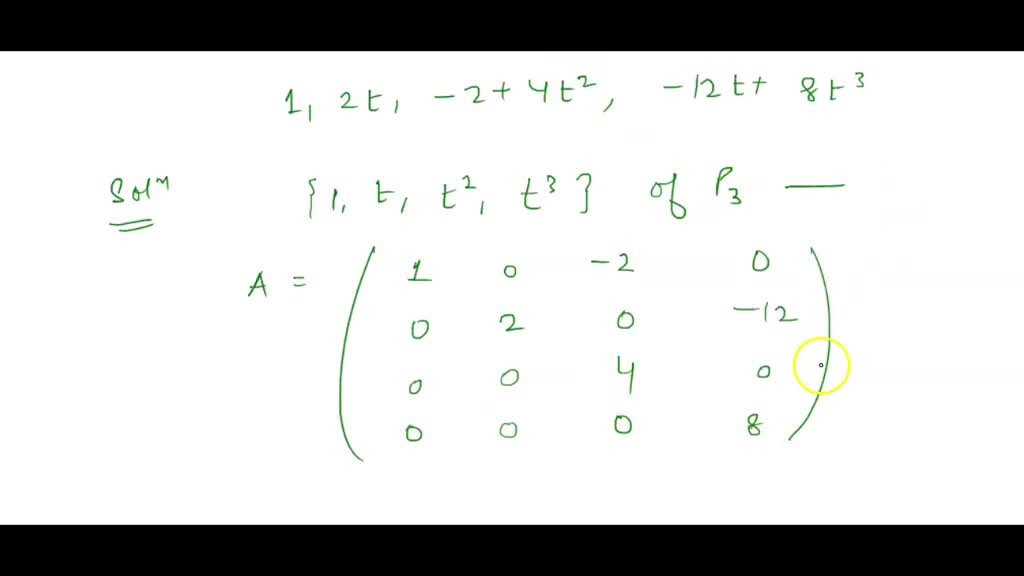 1, 2t, -2+4t², -12t+ 8t³
Solⁿ {1, t, t², t³} of P₃ —
A = ( 1 0 -2 0
0 2 0 -12
0 0 4 0
0 0 0 8 )